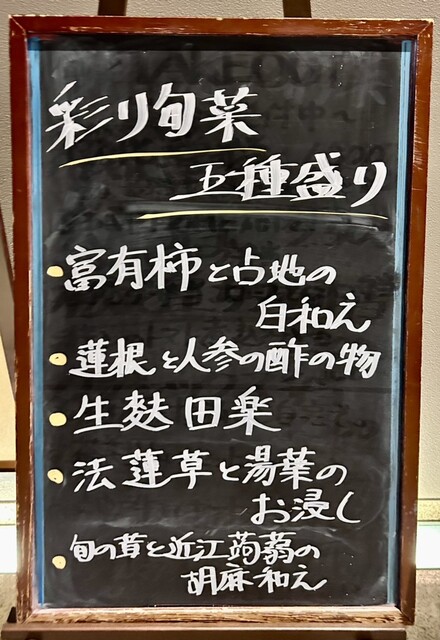 彩り旬菜
五種盛り
富有柿と占地の
白和え
蓮根と人参の酢の物
生麩田楽
法蓮草と湯葉の
お浸し
旬の茸と近江蒟蒻の
胡麻和え